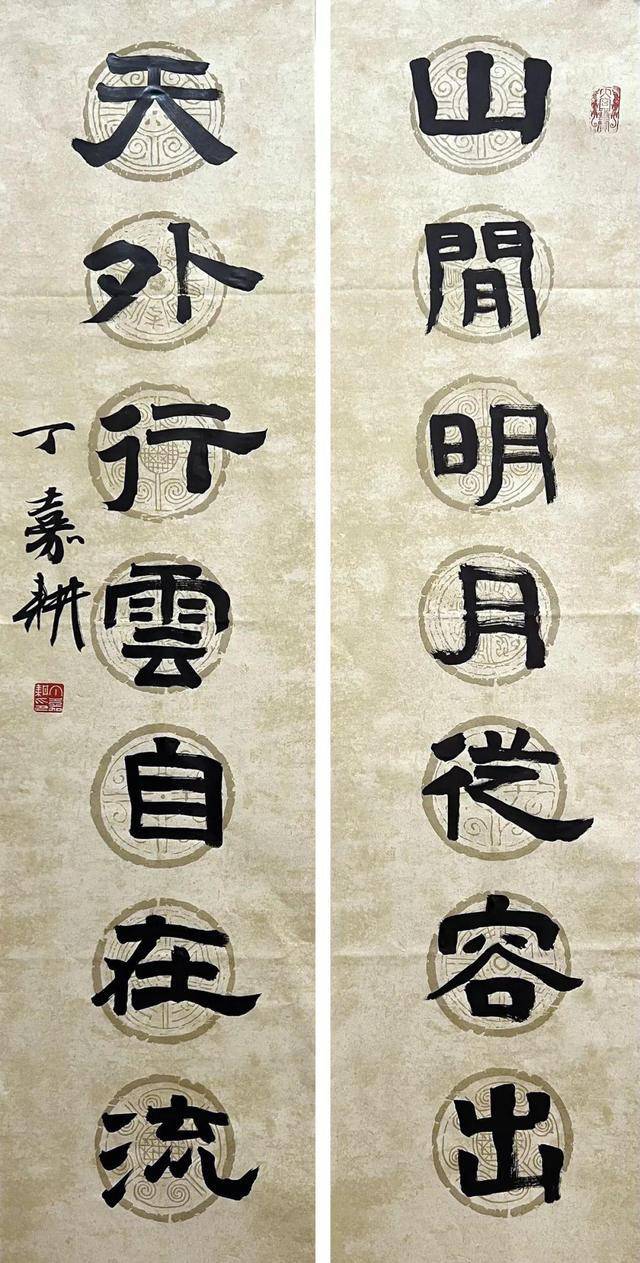 山閒明月從容出
天外行雲自在流
丁嘉耕